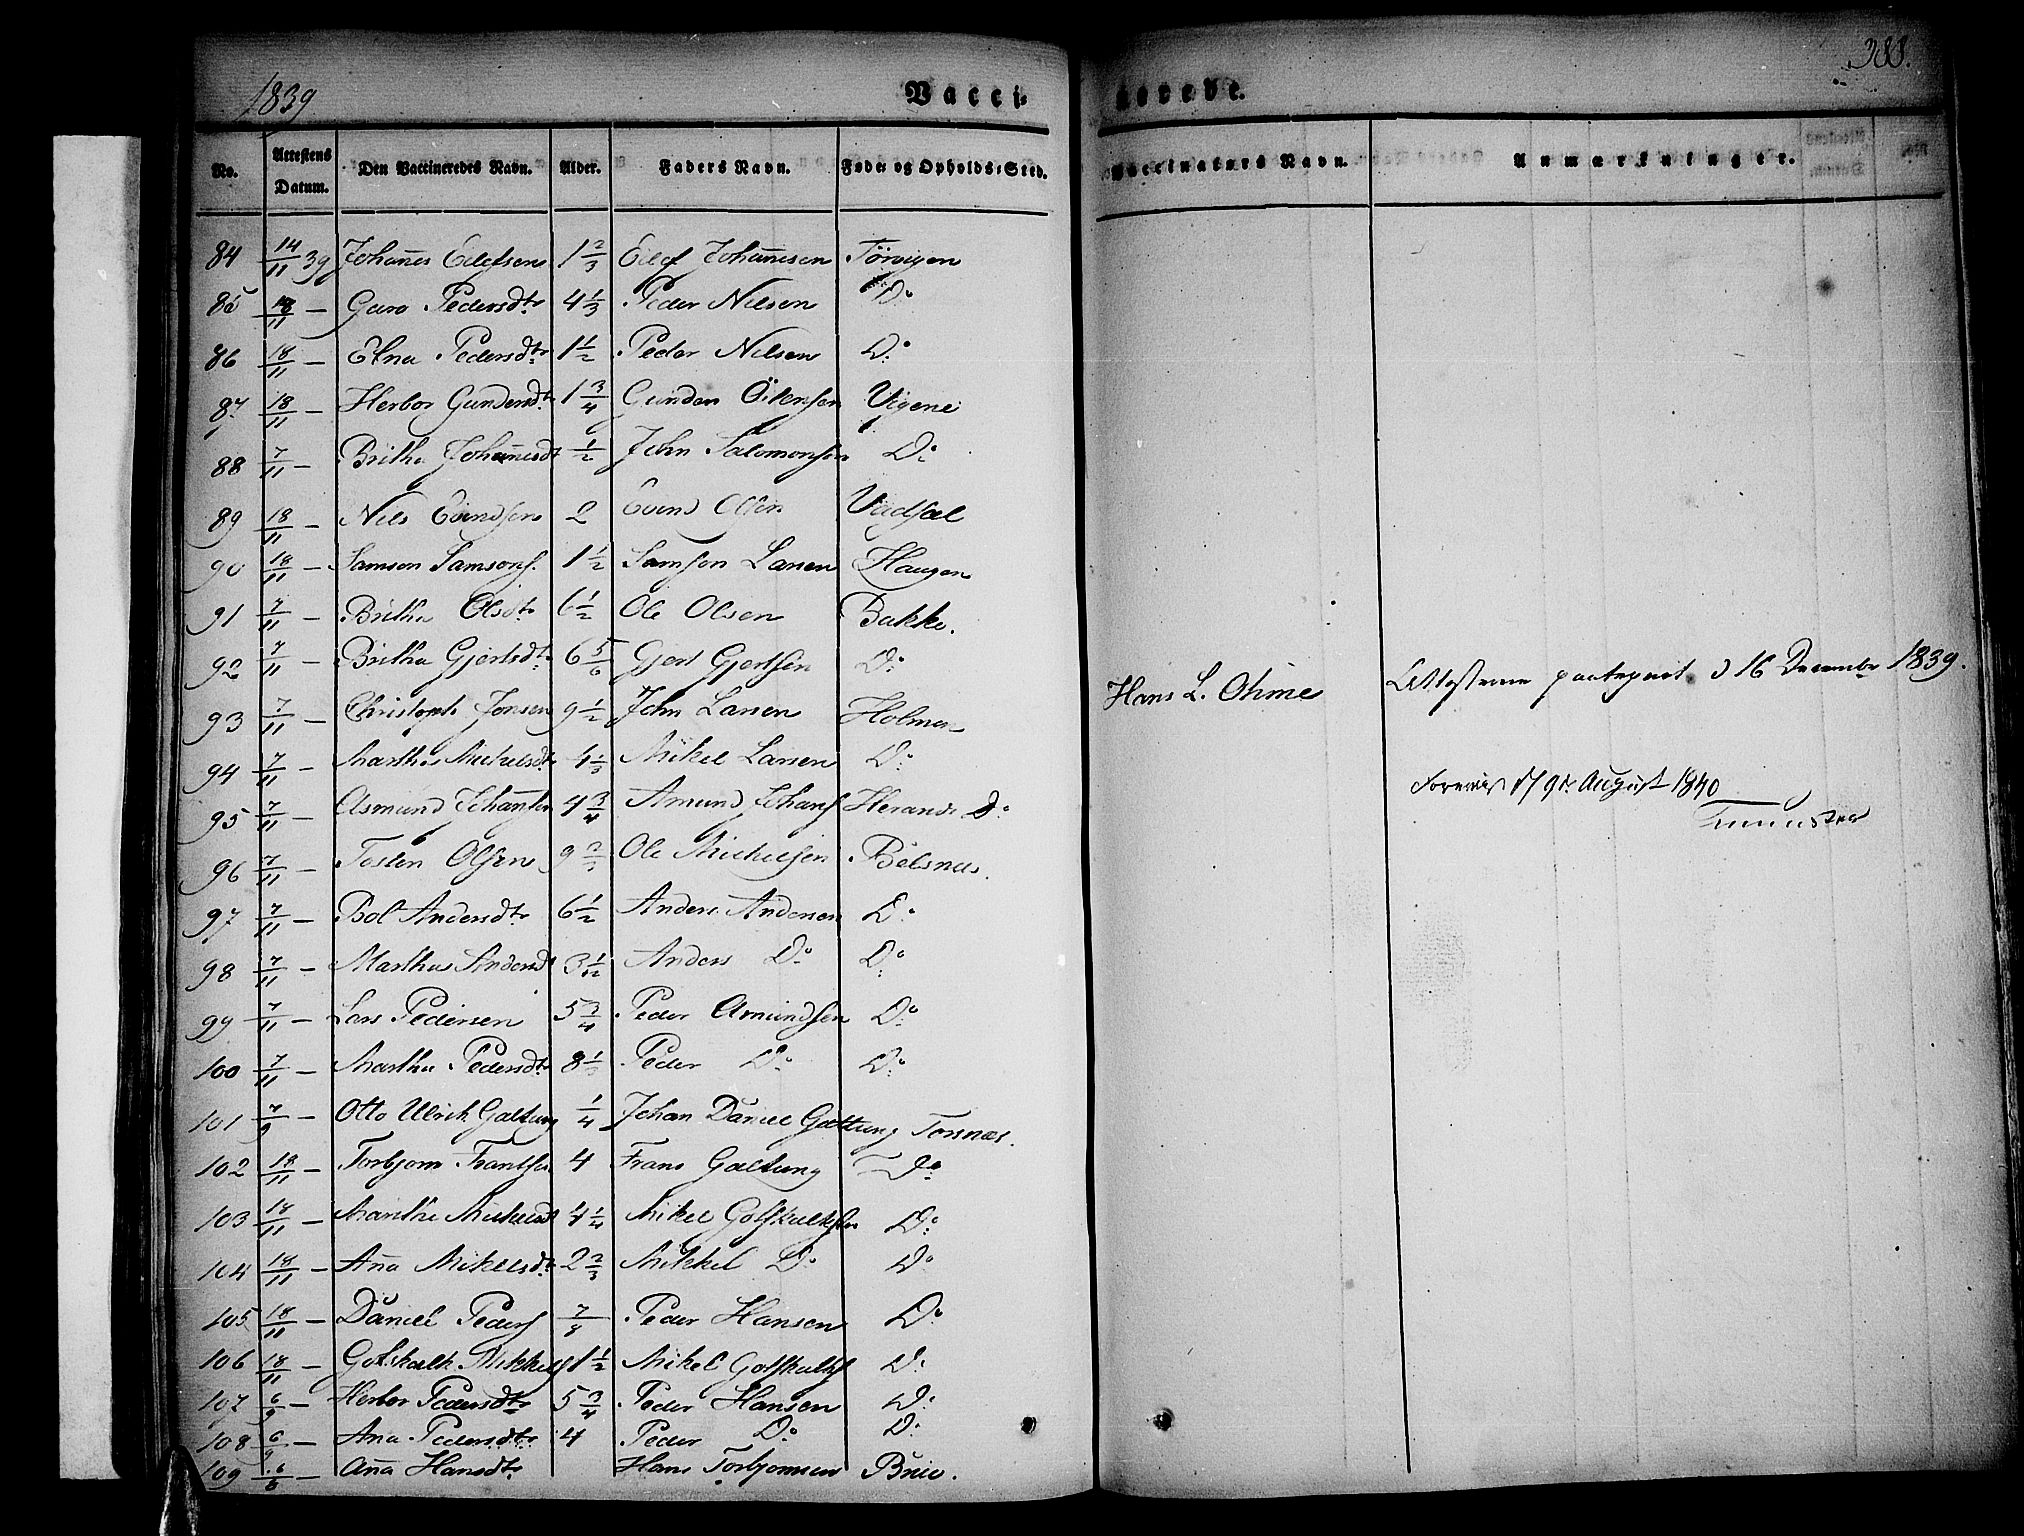 1839 Vacci- nerede. 388.
No. Attestens Datum. Den Vaccineredes Navn. Alder. Faders Navn. Føde og Opholds-Sted. Vaccinateurs Navn. Anmærkninger.
84 14/11 39 Johan̄es Edefsen 1 2/3 Edef Johan̄esen Törvigen
85 18/11 — Guro Pedersdtr 4 1/3 Peder Nilsen Do
86 18/11 — Elna Pedersdtr 1 1/2 Peder Nilsen Do
87 18/11 — Herbor Gundersdtr 1 3/4 Gunder Vigene
88 7/11 — Britha Johan̄esdt 1/2 John Salomonsen Do
89 18/11 — Nils Evindsen 2 Evind Olsen
90 18/11 — Samson Samsons. 1 1/2 Samson Larsen Haugen
91 7/11 — Britha Olsdtr 6 1/2 Ole Olsen Bakke.
92 7/11 — Britha Gjertsdtr 6 5/6 Gjert Gjertsen Do
93 7/11 — Christoph Jonsen 9 1/2 John Larsen Holmen
Hans L. Ohme
Attesterne 16 December 1839.
94 7/11 — Martha Mickelsdtr 4 1/3 Mikel Larsen Do
95 7/11 — Asmund Johansen 4 3/4 Amund Johans Herand Do
Foreviist d 19de August 1840
96 7/11 — Tosten Olsen 9 Ole Michelsen Belsnæs.
97 7/11 — Bol Andersdtr 6 1/2 Anders Andersen Do
98 7/11 — Martha Andersdt 3 1/12 Anders Do Do
99 7/11 — Lars Pedersen 5 3/4 Peder Amundsen Do
100 7/11 — Martha Pedersdtr 8 1/3 Peder Do Do
101 7/9 — Otto Ulrich Galtung 1/4 Johan Daniel Galtung Torsnæs.
102 18/11 — Torbjorn Frantsen 4 Frans Galtung Do
103 18/11 — Marthe Mickelsdt 4 1/4 Mikel Gotskalksen Do
104 18/11 — An̄a Mikelsdtr 2 2/3 Mikkel Do Do
105 18/11 — Daniel Peders 7/8 Peder Hansen Do
106 18/11 — Gotskalk Mikkels 1 1/2 Mikel Gotskalks Do
107 6/9 — Herbor Pedersdtr 5 3/4 Peder Hansen Do
108 6/9 — An̄a Pedersdtr 4 Peder Do Do
109 — An̄a Hansdtr Hans Torbjornsen